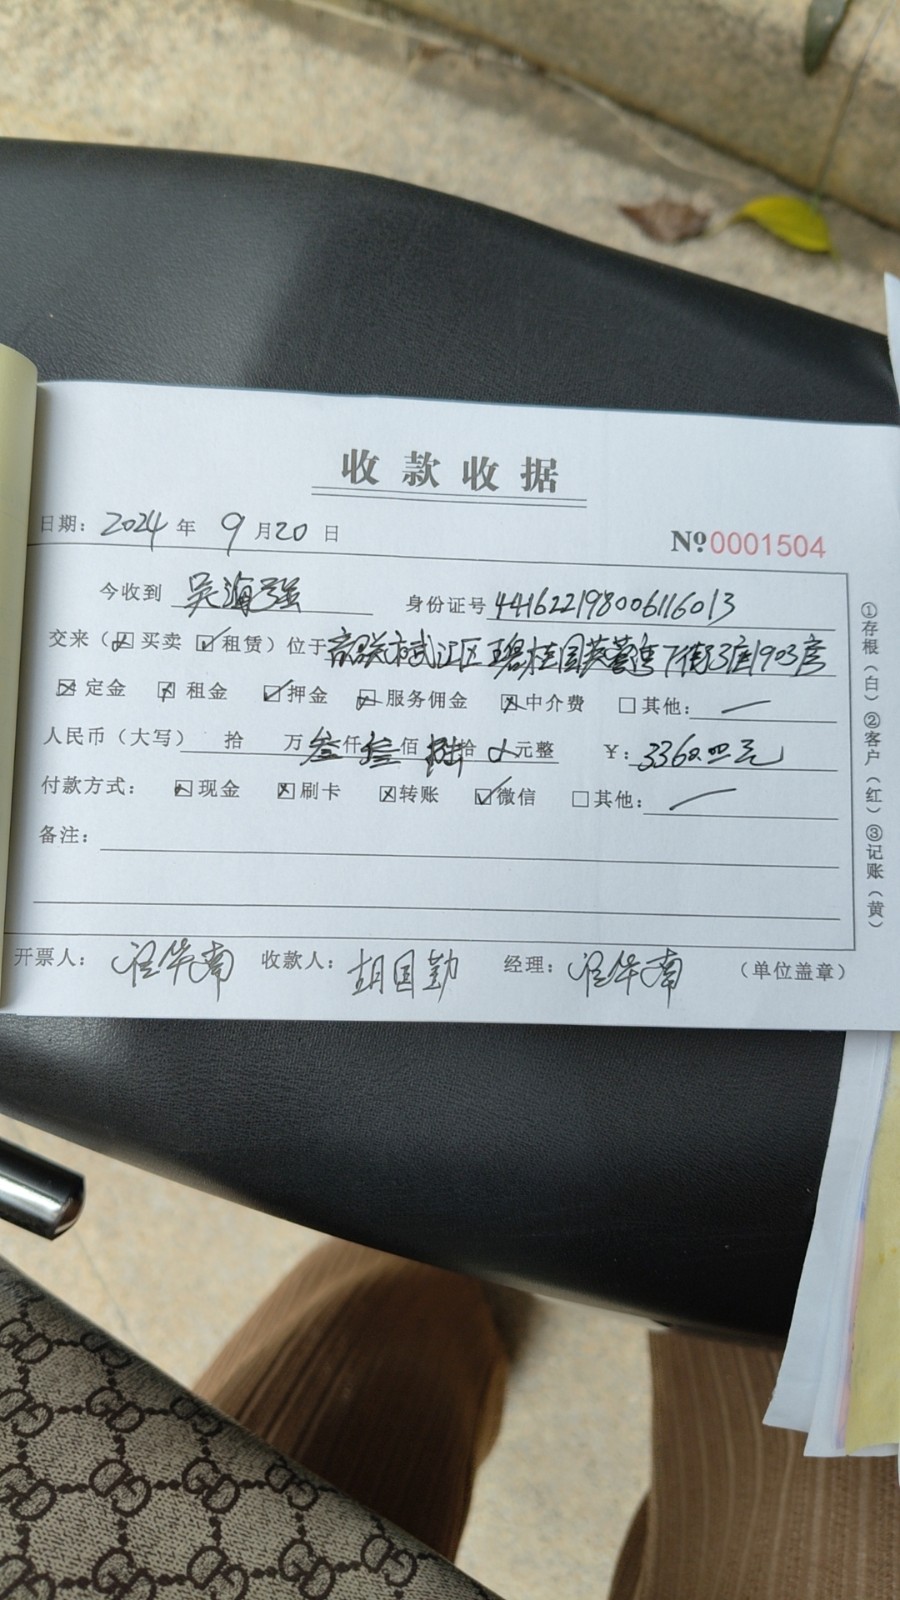 收款收据
日期：2024年 9月20日 №0001504
今收到 吴海强 身份证号 441622198006116013
交来（☒买卖 ☑租赁）位于韶关市武江区碧桂园芙蓉湾7街3座1903房
☒定金 ☒租金 ☑押金 ☒服务佣金 ☒中介费 □其他：
人民币（大写） 拾 万叁仟叁佰陆拾 元整 ¥：3360.00元
付款方式：☒现金 ☒刷卡 ☒转账 ☑微信 □其他：
备注：
开票人： 收款人：胡国勤 经理： （单位盖章）
①存根（白）②客户（红）③记账（黄）